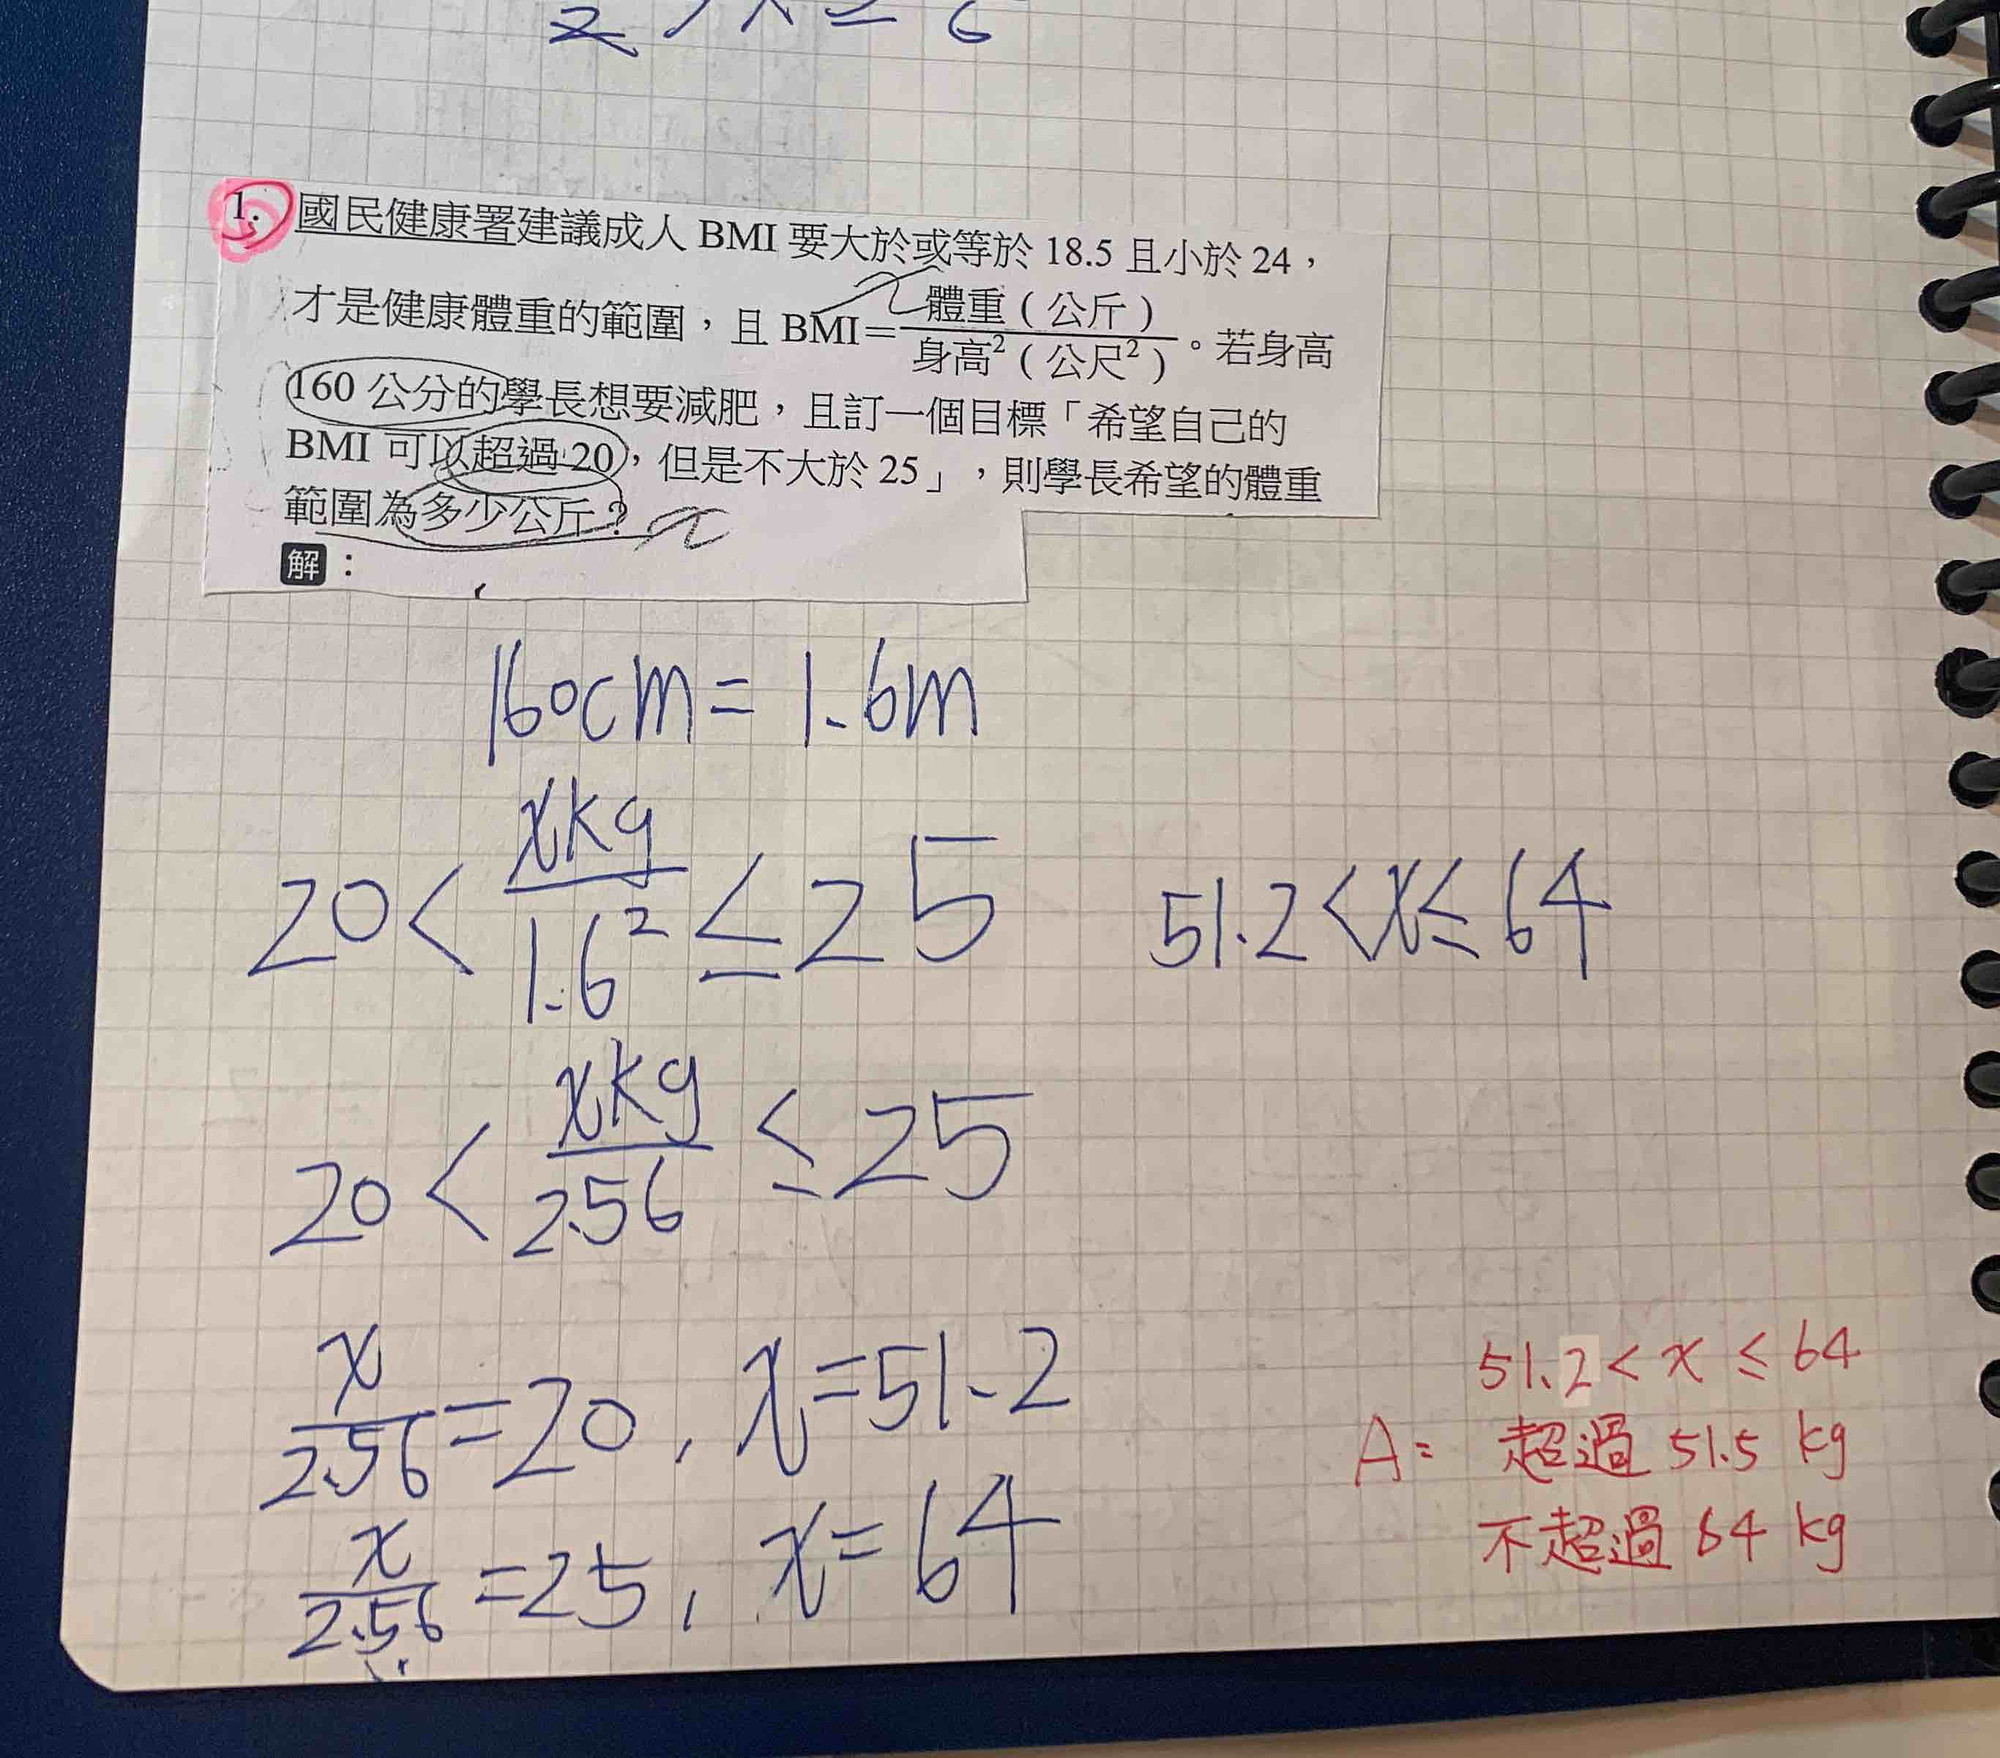 1. 國民健康署建議成人 BMI 要大於或等於 18.5 且小於 24，
才是健康體重的範圍，且 BMI＝體重（公斤）/身高²（公尺²）。若身高
160 公分的學長想要減肥，且訂一個目標「希望自己的
BMI 可以超過 20，但是不大於 25」，則學長希望的體重
範圍為多少公斤？ x
解：
160cm = 1.6m
20 < xkg/1.6² ≤ 25
51.2 < x ≤ 64
20 < xkg/2.56 ≤ 25
x/2.56 = 20, x = 51.2
x/2.56 = 25, x = 64
51.2 < x ≤ 64
A= 超過 51.5 kg
不超過 64 kg